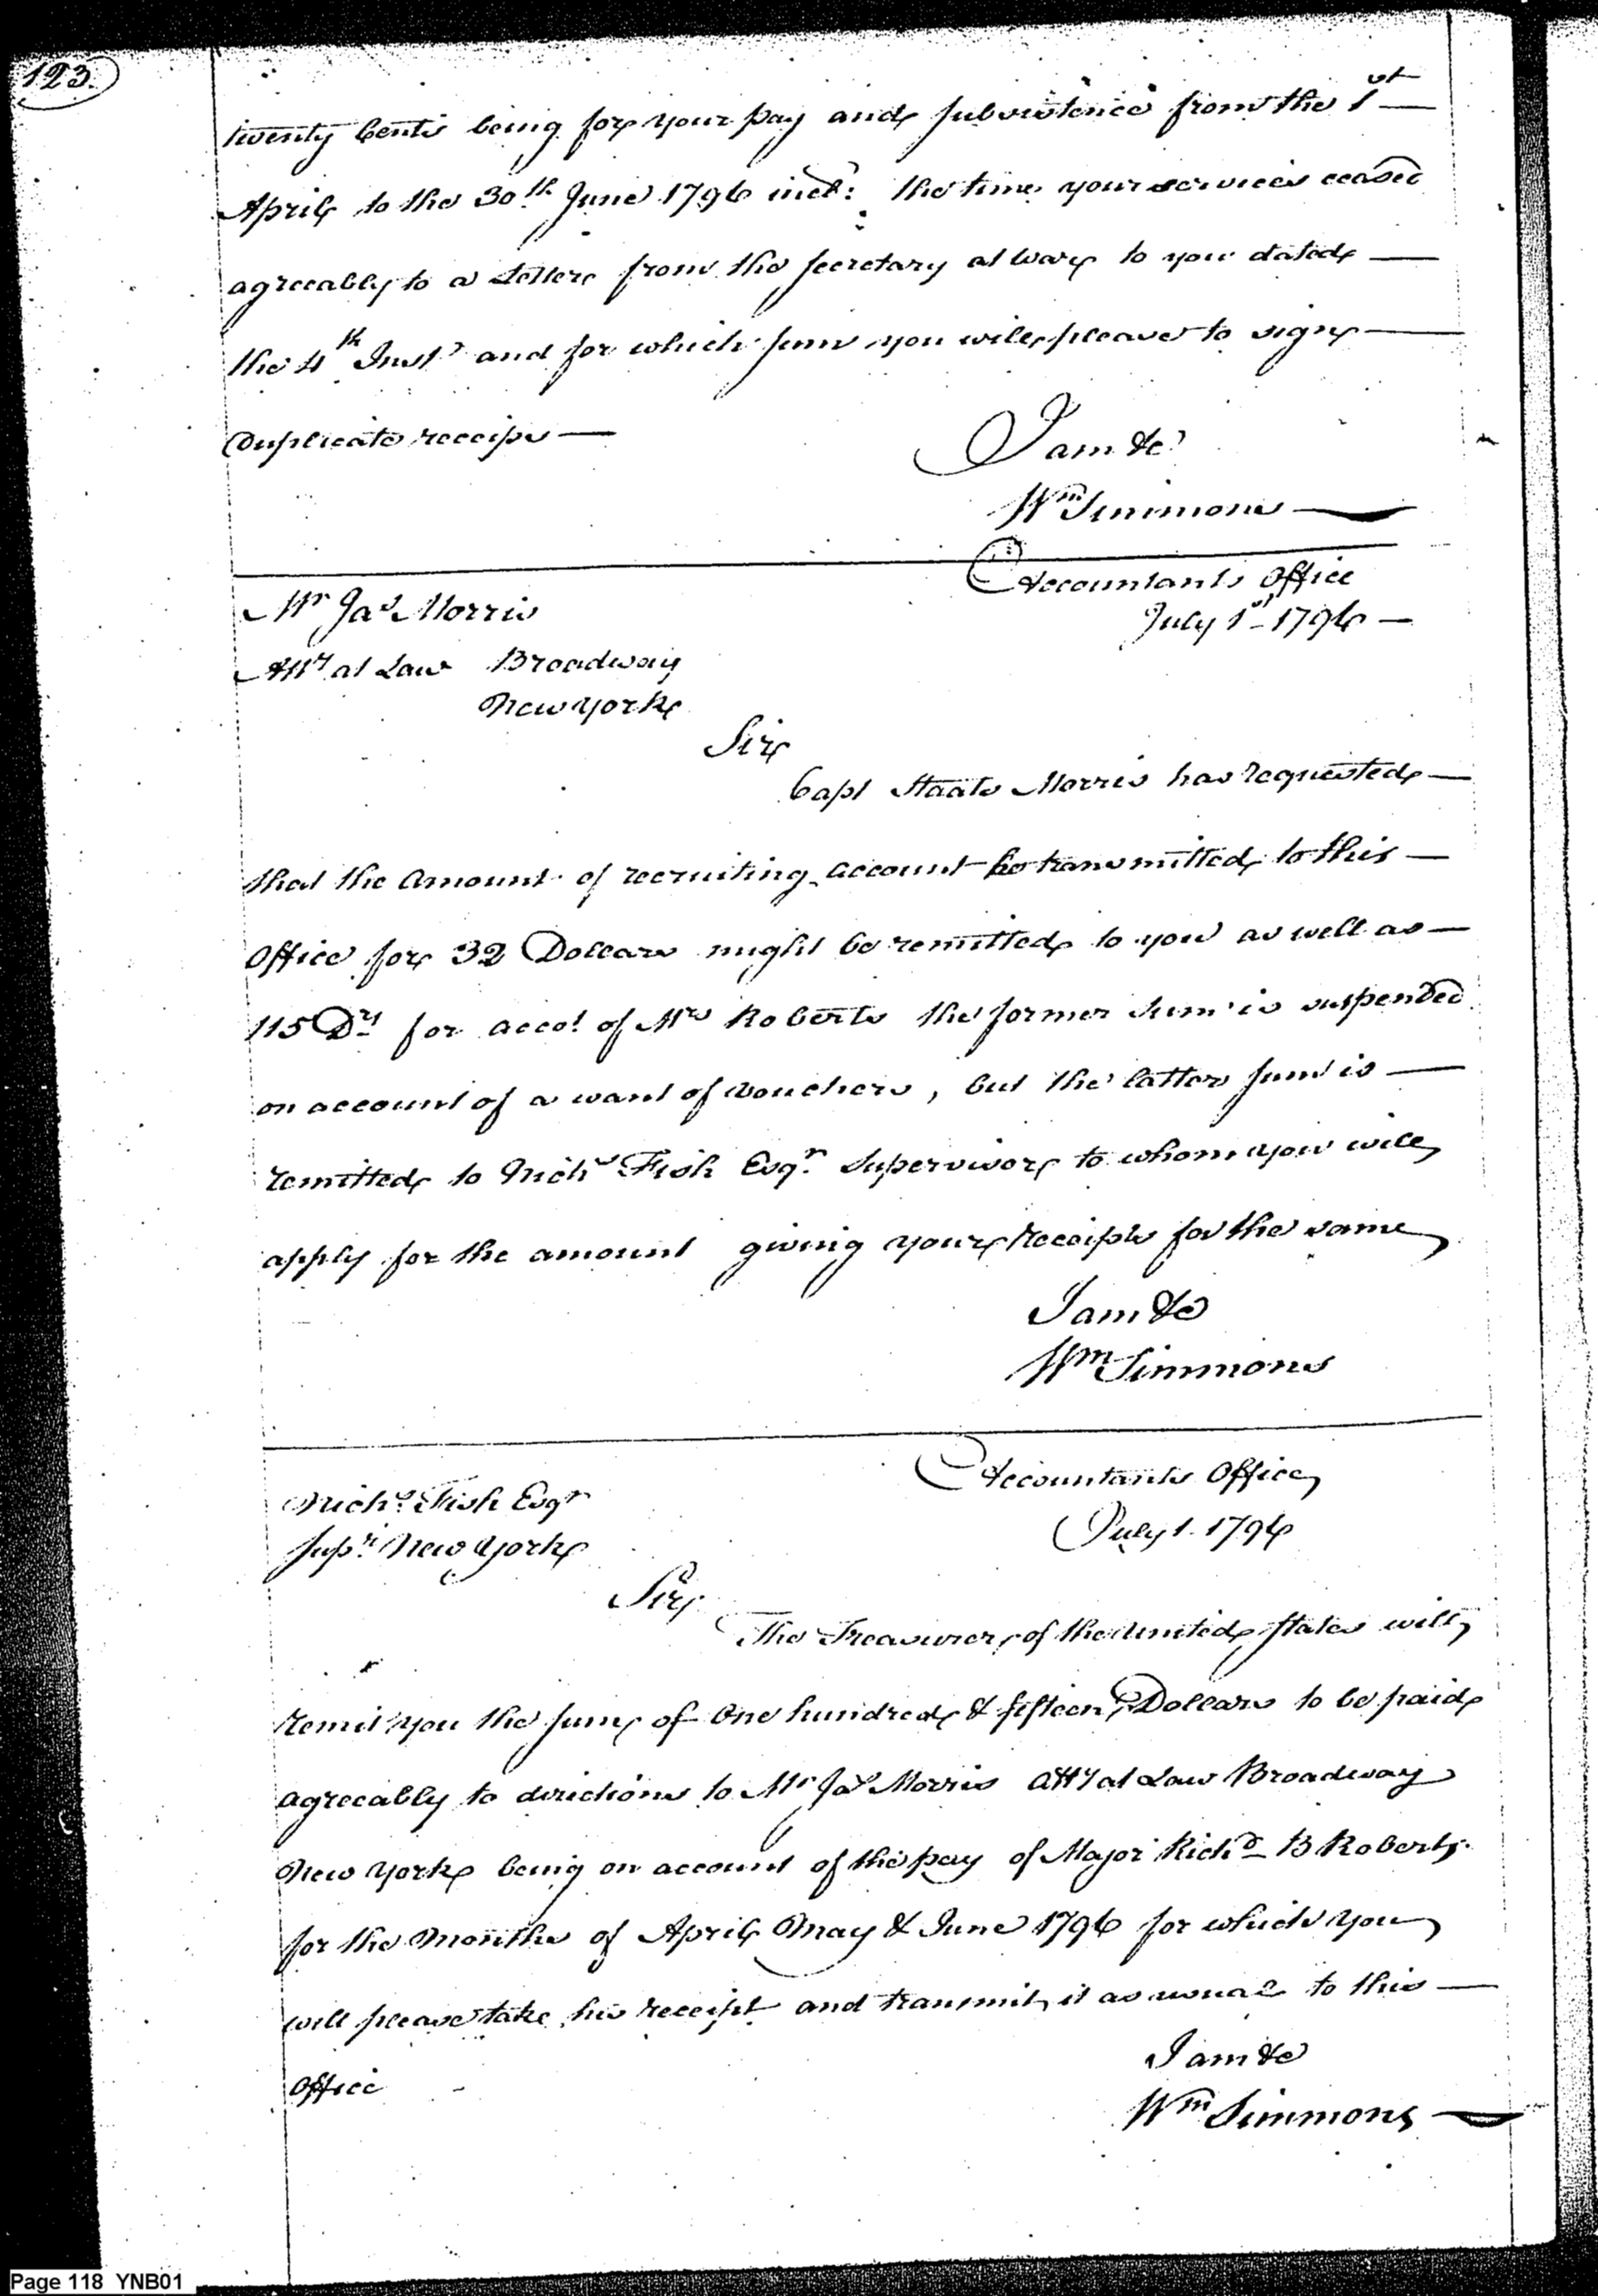 123.
twenty Cents being for your pay and subsistence from the 1st
April to the 30th June 1796 incl: the time your services ceased
agreeably to a Letter from the Secretary at War to you dated
the 4th Inst and for which sum you will please to sign
Duplicate receips
I am &c
Wm Simmons
Accountants Office
July 1st 1796
Mr Jas Morris
Atty at Law Broadway
New York
Sir
Capt Staats Morris has requested
that the Amount of recruiting account transmitted to this
Office for 32 Dollars might be remitted to you as well as
115 Drs for accot of Mrs Roberts the former sum is suspended
on account of a want of vouchers, but the latter sum is
remitted to Nichs Fish Esqr Supervisor to whom you will
apply for the amount giving your receipts for the same
I am &c
Wm Simmons
Accountants Office
July 1. 1796
Nichs Fish Esqr
Supr New York
Sir
The Treasurer of the United States will
remit you the sum of One hundred & fifteen Dollars to be paid
agreeably to directions to Mr Jas Morris atty at Law Broadway
New York being on account of the pay of Major Richd B Roberts
for the Months of April May & June 1796 for which you
will please take his receipt and transmit it as usual to this
Office
I am &c
Wm Simmons
Page 118 YNB01